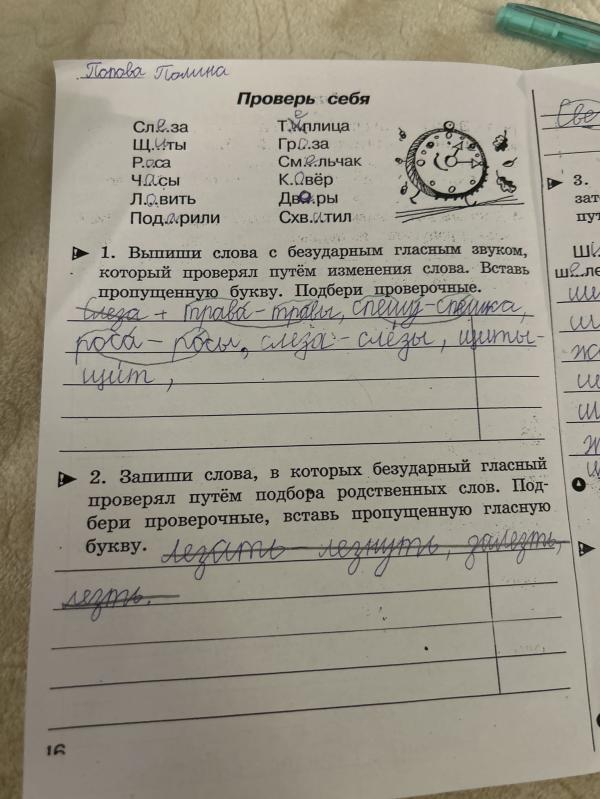 Попова Полина
Проверь себя
Сл.е.за Т.е.плица
Щ.и.ты Гр.о.за
Р.о.са См.е.льчак
Ч.а.сы К.о.вёр
Л.о.вить Дв.о.ры
Под.а.рили Схв.а.тил
1. Выпиши слова с безударным гласным звуком,
который проверял путём изменения слова. Вставь
пропущенную букву. Подбери проверочные.
Слеза + трава - травы, спешу - спешка,
роса - росы, слеза - слёзы, щиты -
щит,
2. Запиши слова, в которых безударный гласный
проверял путём подбора родственных слов. Под-
бери проверочные, вставь пропущенную гласную
букву. лезать - лезнуть, залезть,
лезть.
16
Све
3.
зат
пу